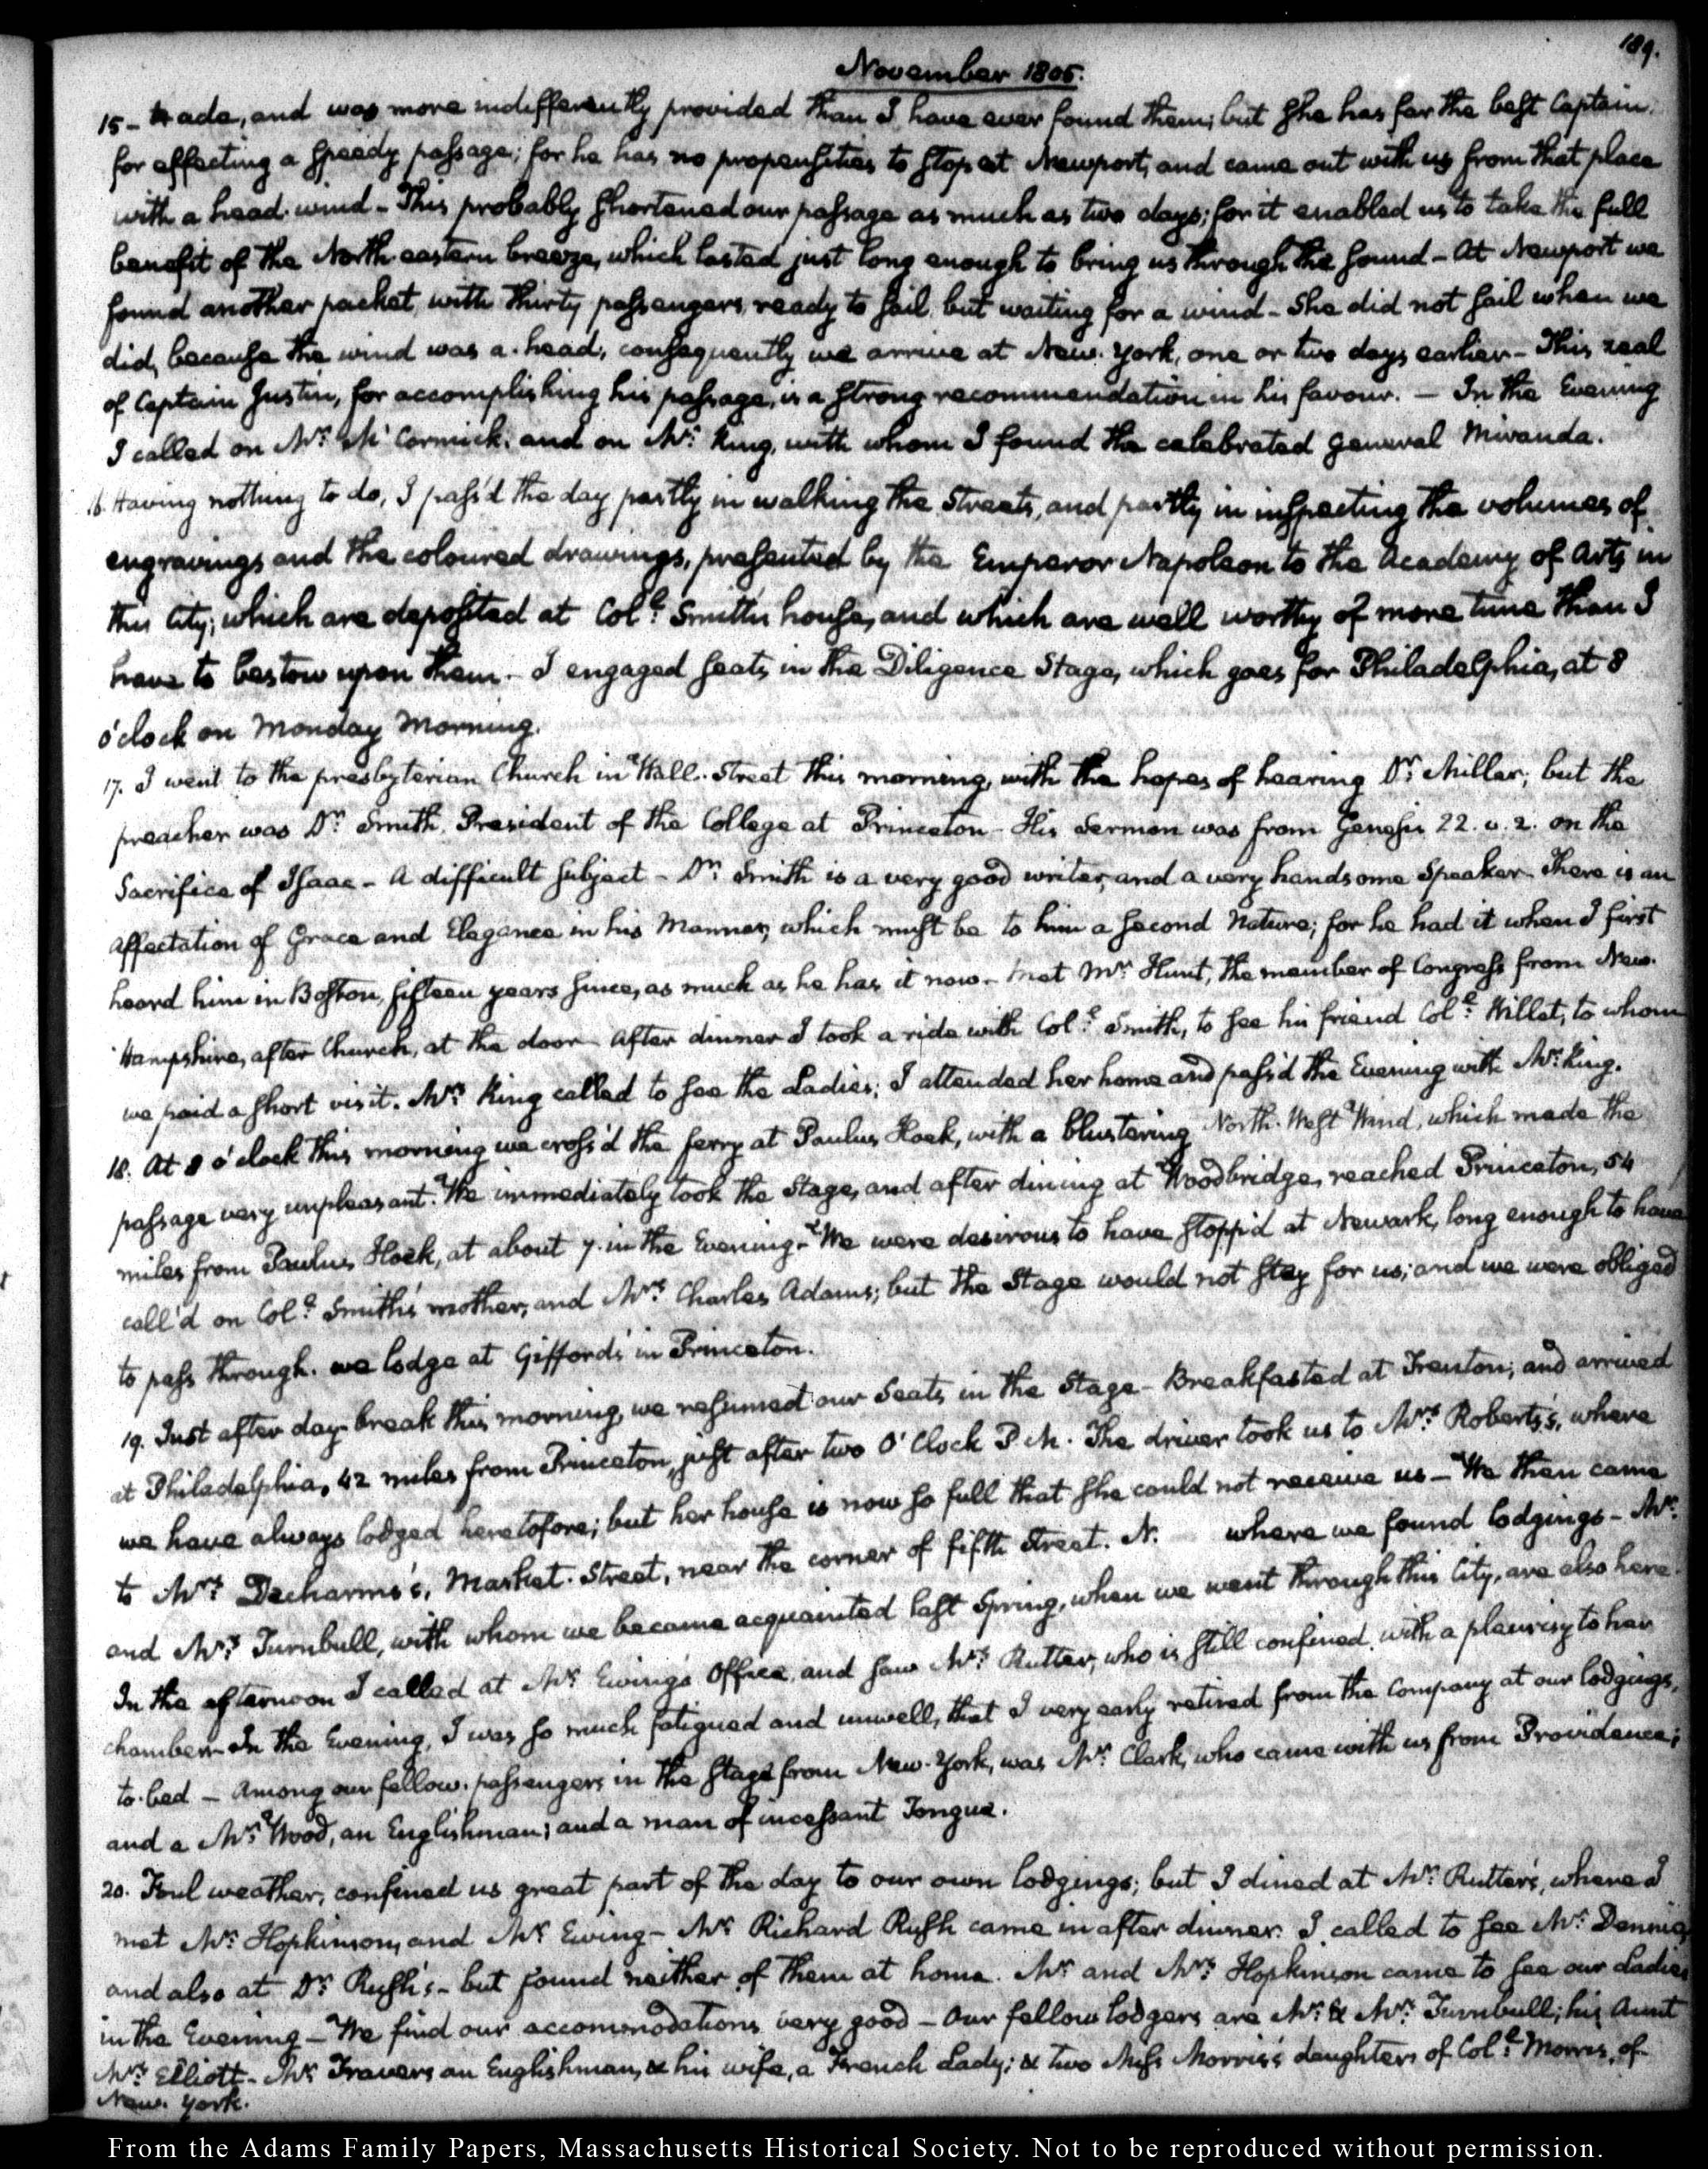 189.
November 1805.
15- trade, and was more indifferently provided than I have ever found them; but she has far the best Captain.
for effecting a speedy passage; for he has no propensities to stop at Newport, and came out with us from that place
with a head-wind - This probably shortened our passage as much as two days; for it enabled us to take the full
benefit of the North eastern breeze, which lasted just long enough to bring us through the sound - At Newport we
found another packet, with thirty passengers, ready to sail, but waiting for a wind - She did not sail when we
did, because the wind was a-head, consequently we arrive at New-York, one or two days earlier - This zeal
of Captain Justin, for accomplishing his passage, is a strong recommendation in his favour. - In the Evening
I called on Mr. Mc.Cormick, and on Mr. King, with whom I found the celebrated General Miranda.
16. Having nothing to do, I pass'd the day partly in walking the Streets, and partly in inspecting the volumes of
engravings and the coloured drawings, presented by the Emperor Napoleon to the Academy of Arts in
this City; which are deposited at Coll. Smith's house, and which are well worthy of more time than I
have to bestow upon them - I engaged seats in the Diligence Stage, which goes for Philadelphia, at 8
o'clock on Monday Morning.
17. I went to the presbyterian Church in Wall-Street this morning, with the hopes of hearing Dr. Miller; but the
preacher was Dr. Smith, President of the College at Princeton - His Sermon was from Genesis 22. v. 2. on the
Sacrifice of Isaac - A difficult subject - Dr. Smith is a very good writer, and a very handsome Speaker - There is an
affectation of Grace and Elegance in his Manner, which must be to him a second Nature; for he had it when I first
heard him in Boston, fifteen years since, as much as he has it now - Met Mr. Hunt, the member of Congress from New-
Hampshire, after Church, at the door - After dinner I took a ride with Coll. Smith, to see his friend Coll. Willet, to whom
we paid a short visit. Mrs. King called to see the Ladies; I attended her home and pass'd the Evening with Mr. King.
18. At 8 o'clock this morning we cross'd the ferry at Paulus Hook, with a blustering North-West Wind, which made the
passage very unpleasant. We immediately took the Stage, and after dining at Woodbridge, reached Princeton, 54
miles from Paulus Hook, at about 7. in the Evening - We were desirous to have stopp'd at Newark, long enough to have
call'd on Coll. Smith's mother, and Mrs. Charles Adams; but the Stage would not stay for us; and we were obliged
to pass through. we lodge at Gifford's in Princeton.
19. Just after day-break this morning, we resumed our Seats in the Stage - Breakfasted at Trenton; and arrived
at Philadelphia, 42 miles from Princeton, just after two O'Clock P.M. The driver took us to Mrs. Roberts's, where
we have always lodged heretofore; but her house is now so full that she could not receive us - We then came
to Mrs. Decharms's, Market-Street, near the corner of fifth Street. N. where we found lodgings - Mr.
and Mrs. Turnbull, with whom we became acquainted last Spring, when we went through this City, are also here.
In the afternoon I called at Mr. Ewing's Office, and saw Mrs. Rutter, who is still confined with a pleurisy to her
chamber - In the Evening, I was so much fatigued and unwell, that I very early retired from the Company at our lodgings,
to bed - Among our fellow-passengers in the Stage from New-York, was Mr. Clark, who came with us from Providence;
and a Mr. Wood, an Englishman; and a man of incessant Tongue.
20. Foul weather, confined us great part of the day to our own lodgings; but I dined at Mr. Rutter's, where I
met Mr. Hopkinson, and Mr. Ewing - Mr. Richard Rush came in after dinner. I called to see Mr. Dennie,
and also at Dr. Rush's - but found neither of them at home. Mr. and Mrs. Hopkinson came to see our Ladies
in the Evening - We find our accommodations very good - Our fellow lodgers are Mr. & Mrs. Turnbull; his Aunt
Mrs. Elliott - Mr. Travers an Englishman, & his wife, a French Lady; & two Miss Morris's daughters of Coll. Morris, of
New-York.
From the Adams Family Papers, Massachusetts Historical Society. Not to be reproduced without permission.